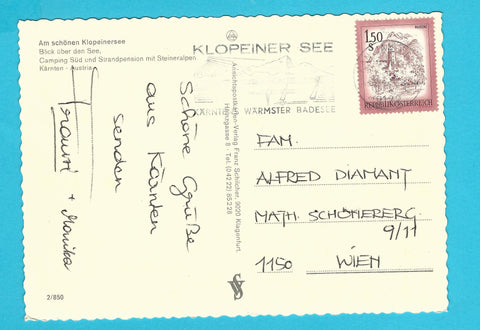 Am schönen Klopeinersee
Blick über den See,
Camping Süd und Strandpension mit Steineralpen
Kärnten - Austria
KLOPEINER SEE
KÄRNTENS WÄRMSTER BADESEE
1.50
S
REPUBLIK ÖSTERREICH
Schöne Grüße
aus Kärnten
senden
Traudi + Monika
Ansichtspostkarten-Verlag Franz Schilcher, 9020 Klagenfurt,
Tel. (04222) 85228
FAM.
ALFRED DIAMANT
MATH. SCHÖNERERG.
9/11
1150 WIEN
2/850